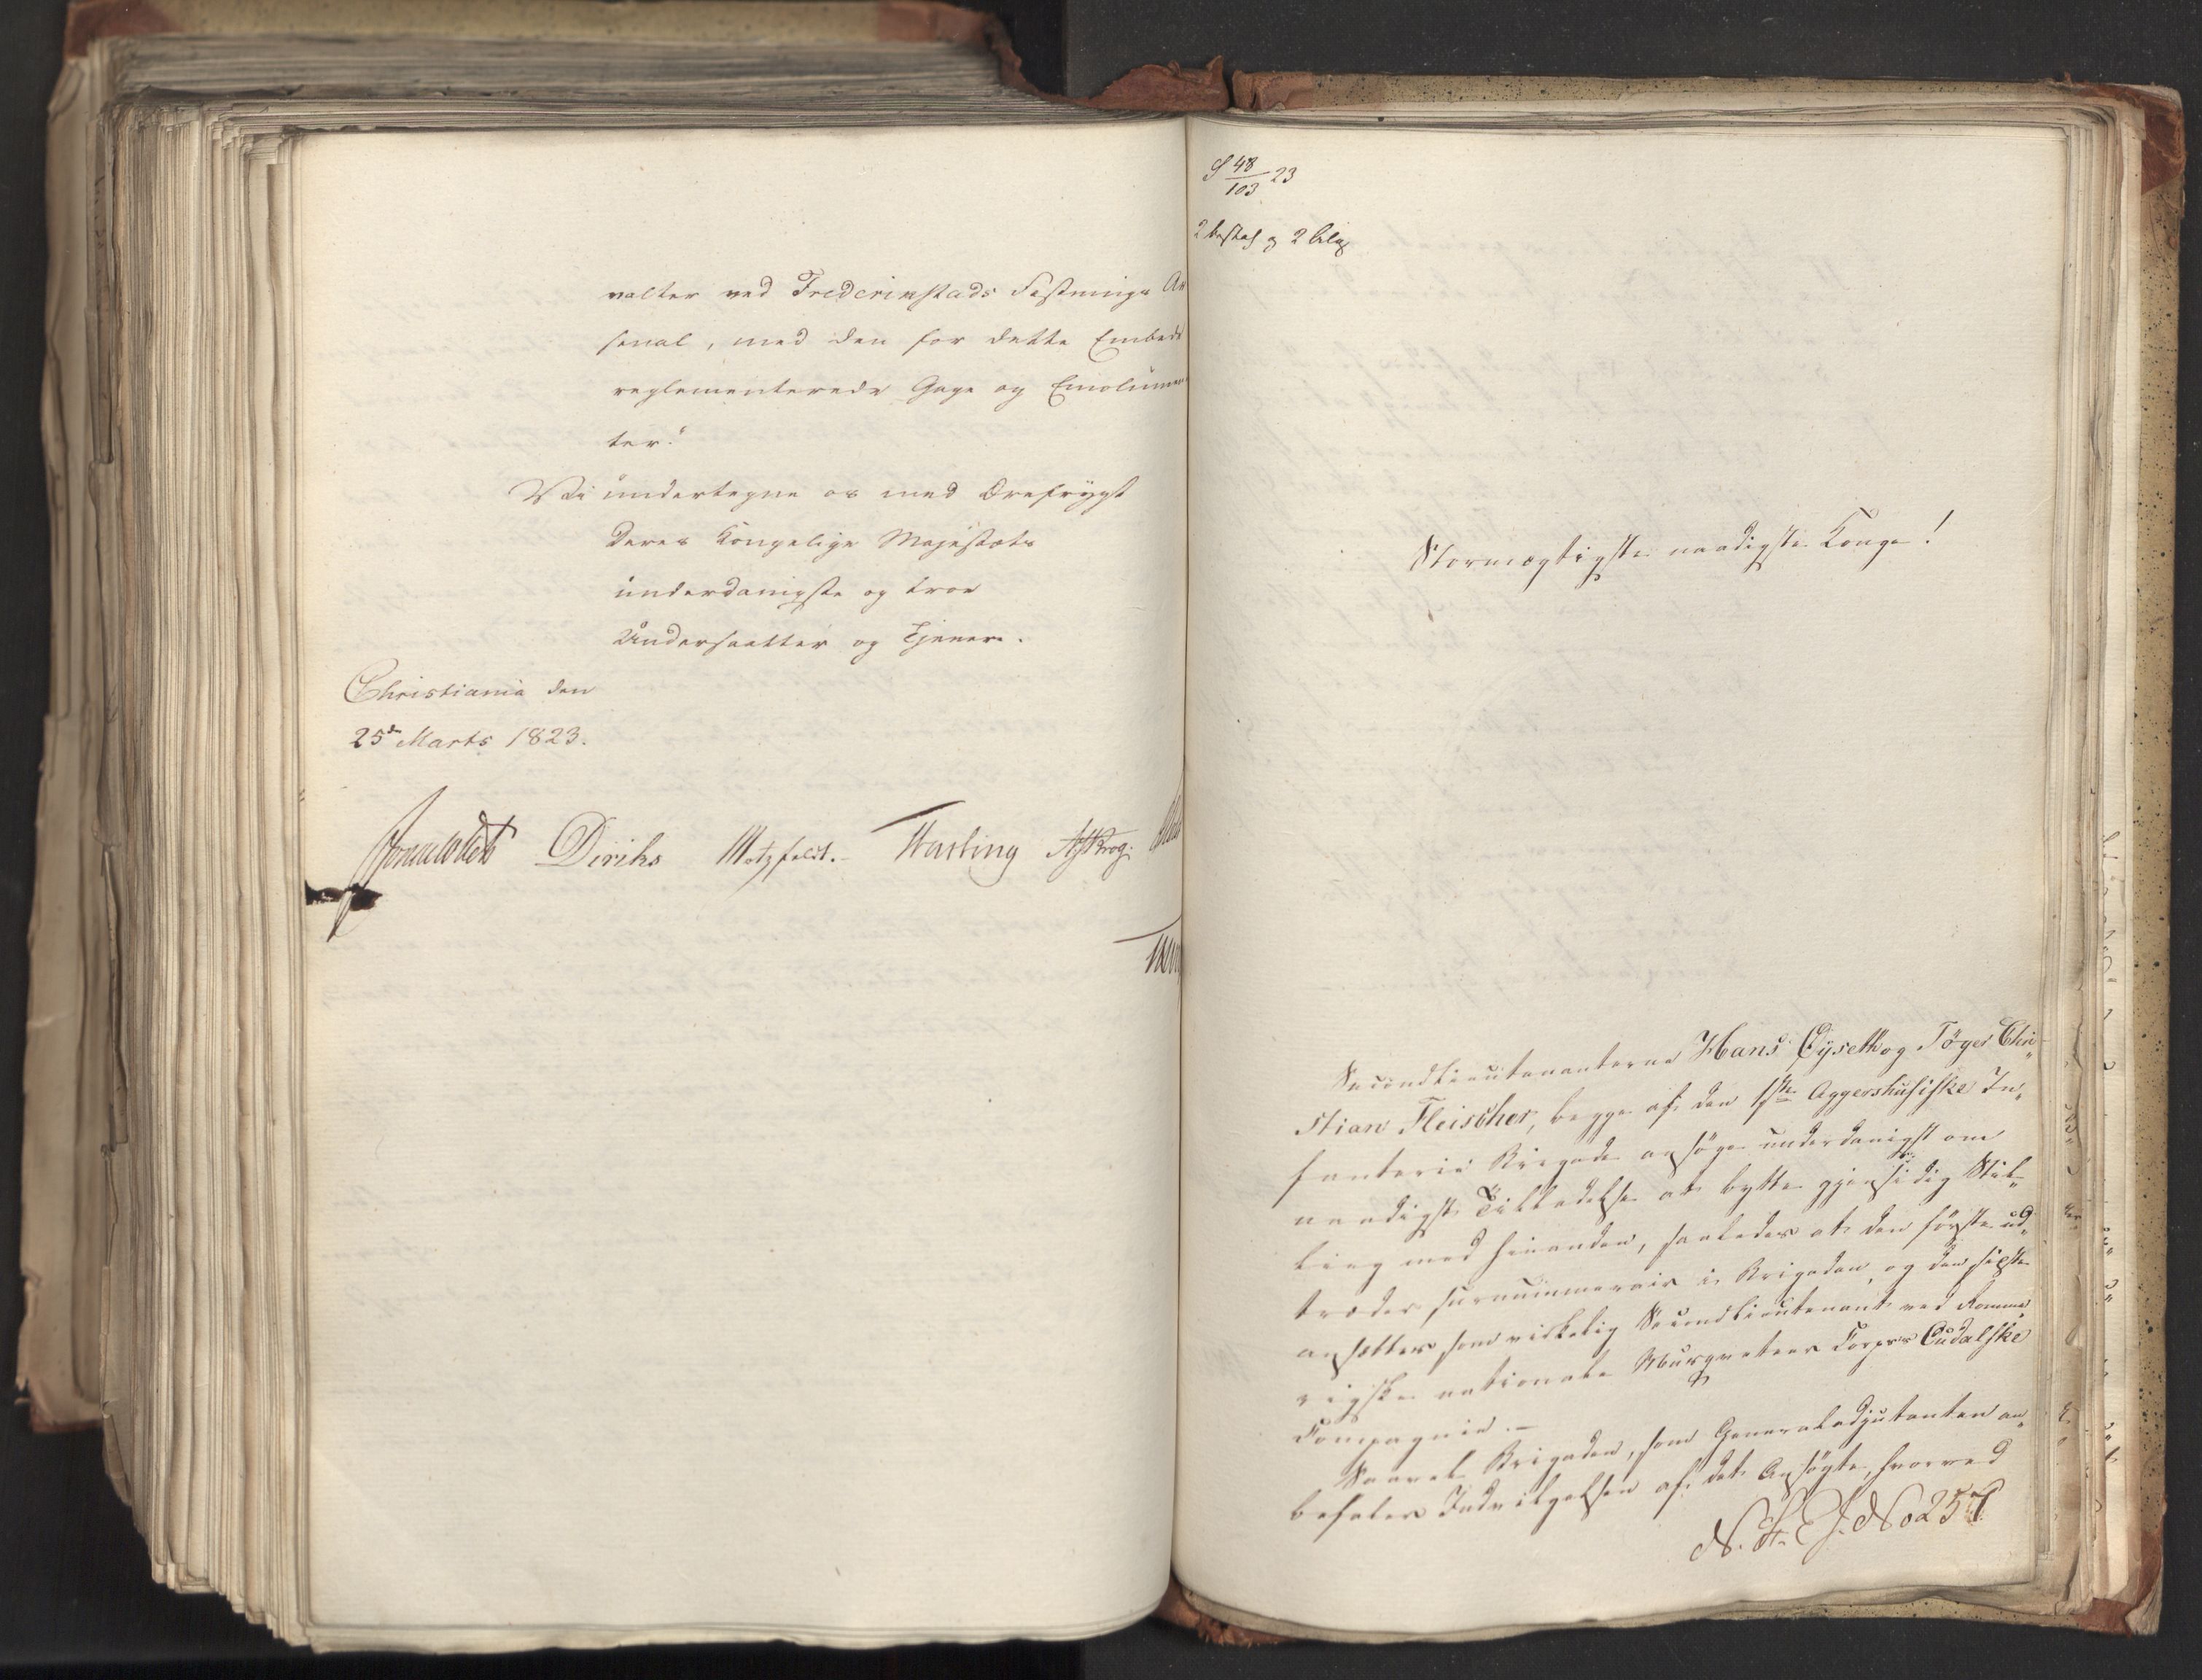 valter ved Frederikstads Fæstnings Ar
senal, med den for dette Embede
reglementerede Gage og Emolumen
ter."
Vi undertegne os med Ærefrygt
Deres Kongelige Majestæts
underdanigste og troe
Undersaatter og Tjenere.
Christiania den
25de Marts 1823.
Diriks Motzfeldt. HKrog.
S 48/103 23
2 2 bilag
Stormægtigste naadigste Konge!
Secondlieutenanterne Hans Gyseth og Töger Chri„
stian Fleischer, begge af den 1ste Aggershusiske In„
fanterie Brigade ansöge underdanigst om
naadigst Tilladelse at bytte gjensidig Stil„
ling med hinanden, saaledes at den förste ud„
træder surnummerair i Brigaden, og den sidste
ansættes som virkelig Secondlieutenant ved Romme„
rigske nationale Musqueteer Corpses Eudalske
Compagnie.-
Saavel Brigaden, som Generaladjutanten an„
befaler Indvilgelsen af det Ansögte, hvorved
N. St. E. J. No 257